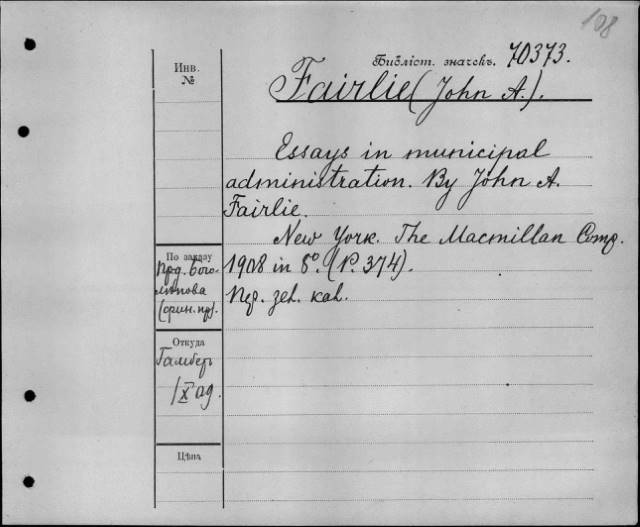 108
Библіот. значекъ. 70373.
Инв.
№
Fairlie (John A.).
Essays in municipal
administration. By John A.
Fairlie.
New York. The Macmillan Comp.
1908 in 8°. (P. 374).
По заказу
Прд. Бого-
лѣпова
(фин. пр).
Откуда
Гамберъ
1/X 09.
Цѣна